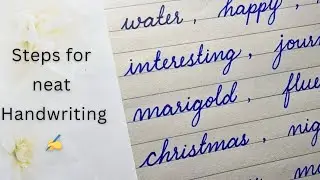 Steps for
neat
Handwriting
✍️
water, happy,
interesting,
marigold,
christmas,